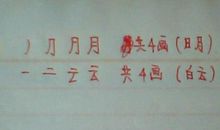 丿 ⺆ 月 月 共4画（日月）
一 二 云 云 共4画（白云）